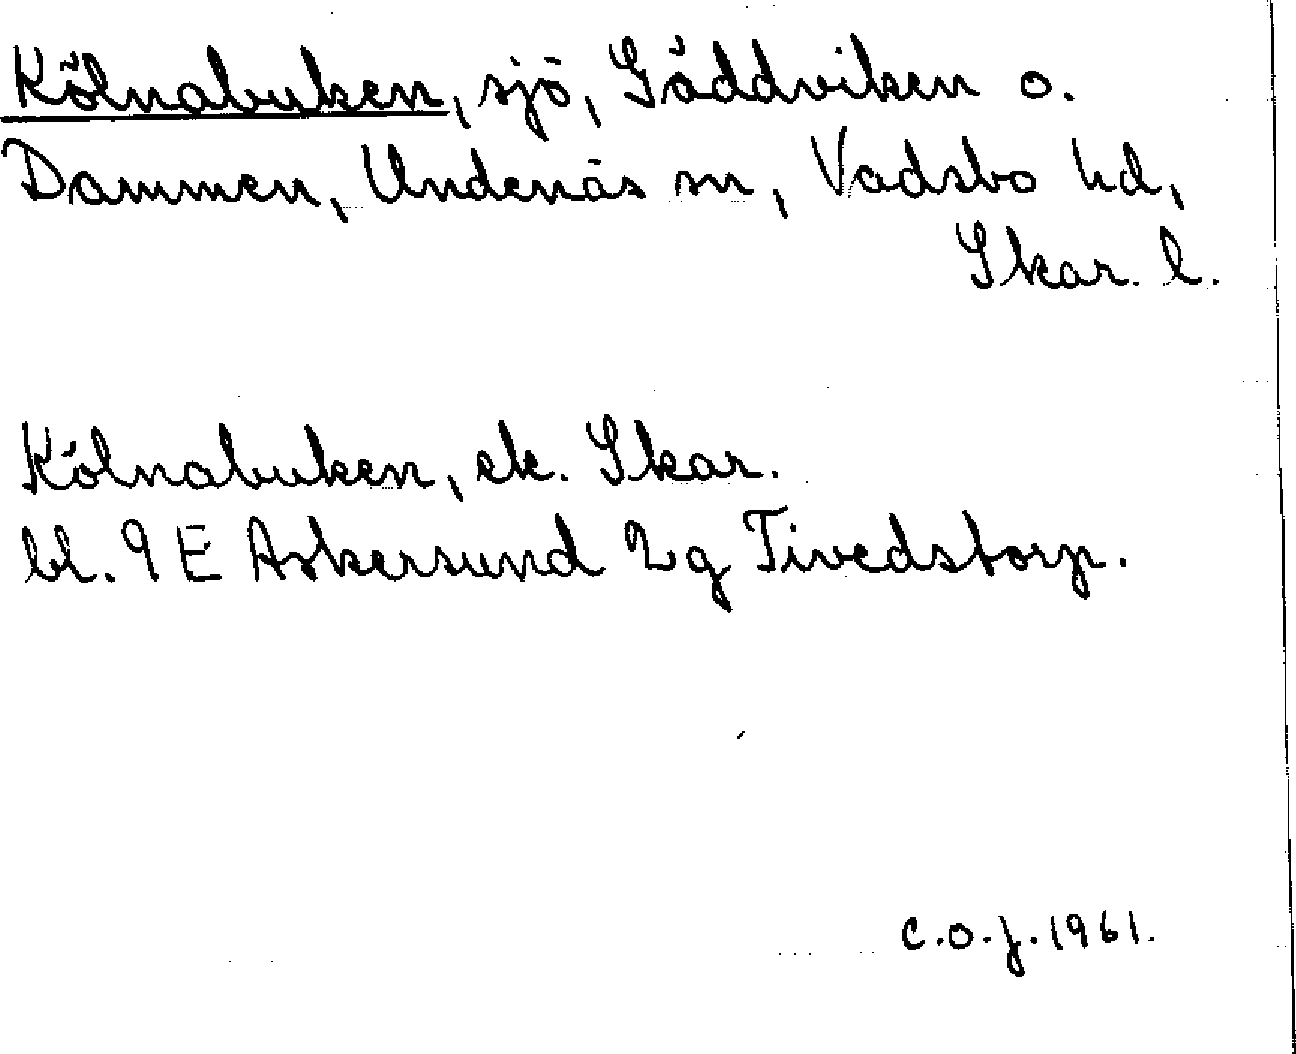 Kölnabuken, sjö, Gäddviken o.
Dammen, Undenäs sn, Vadsbo hd,
Skar. l.
Kölnabuken, ek. Skar.
bl. 9 E Askersund 2g Tivedstorp.
C.O.J. 1961.